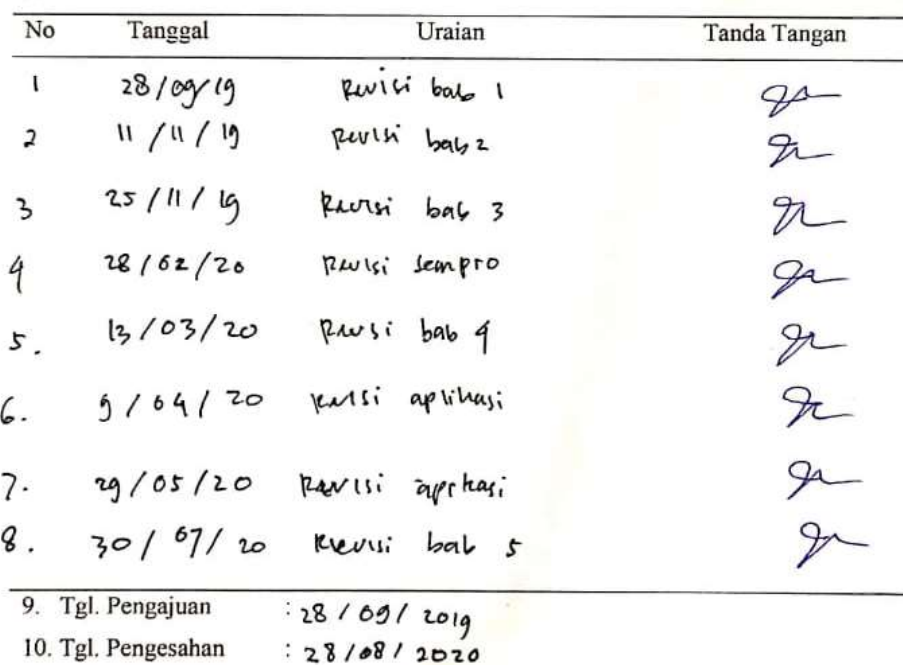 No Tanggal Uraian Tanda Tangan
1 28/09/19 Revisi bab 1
2 11/11/19 Revisi bab 2
3 25/11/19 Revisi bab 3
4 28/02/20 Revisi sempro
5. 13/03/20 Revisi bab 4
6. 9/04/20 Revisi aplikasi
7. 29/05/20 Revisi aplikasi
8. 30/07/20 Revisi bab 5
9. Tgl. Pengajuan : 28/09/2019
10. Tgl. Pengesahan : 28/08/2020